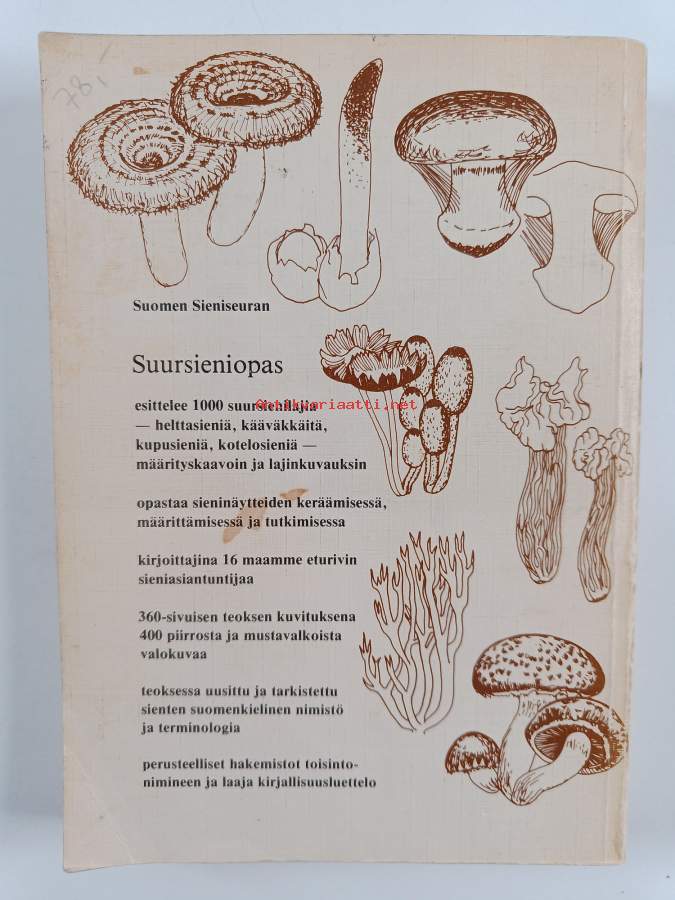 78,-
Suomen Sieniseuran
Suursieniopas
esittelee 1000 suursienilajia
Antikvariaatti.net
— helttasieniä, kääväkkäitä,
kupusieniä, kotelosieniä —
määrityskaavoin ja lajinkuvauksin
opastaa sieninäytteiden keräämisessä,
määrittämisessä ja tutkimisessa
kirjoittajina 16 maamme eturivin
sieniasiantuntijaa
360-sivuisen teoksen kuvituksena
400 piirrosta ja mustavalkoista
valokuvaa
teoksessa uusittu ja tarkistettu
sienten suomenkielinen nimistö
ja terminologia
perusteelliset hakemistot toisinto-
nimineen ja laaja kirjallisuusluettelo